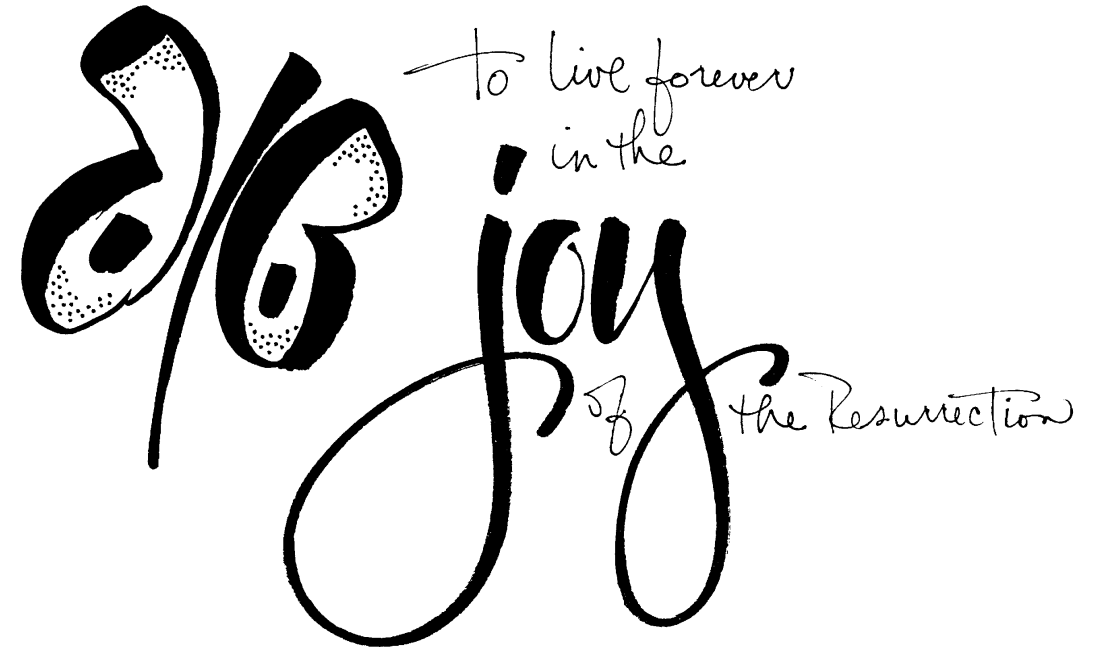 to live forever
in the
joy
of the Resurrection